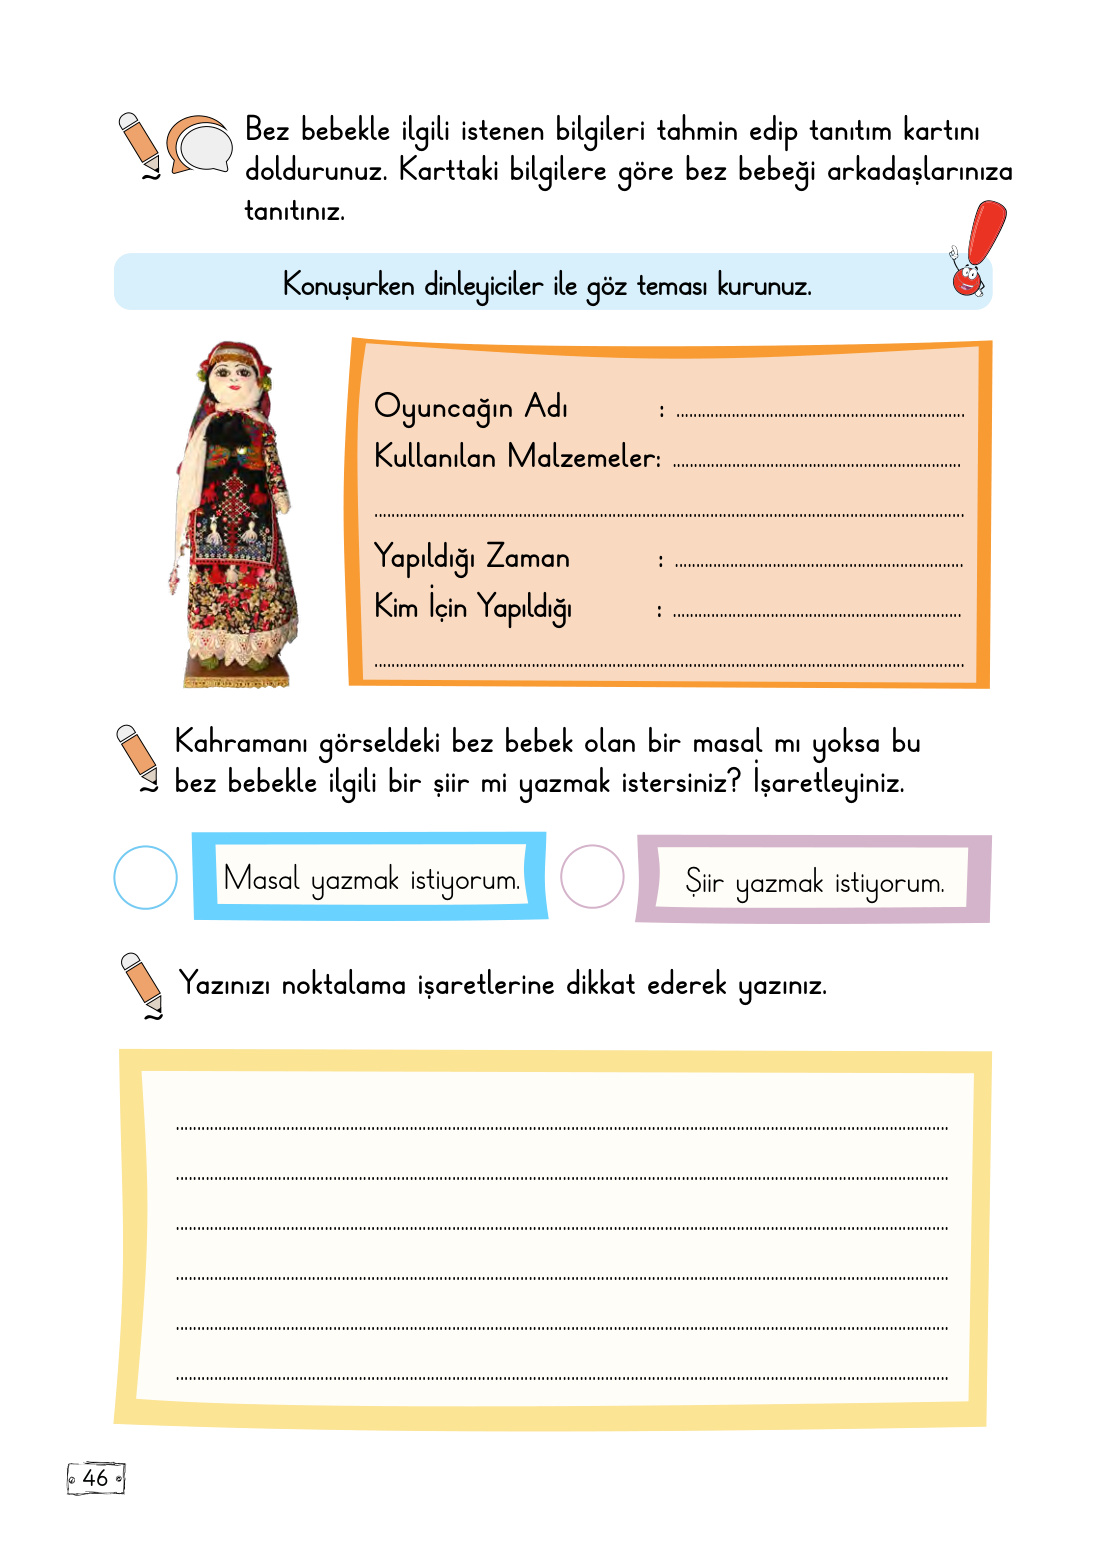 Bez bebekle ilgili istenen bilgileri tahmin edip tanıtım kartını
doldurunuz. Karttaki bilgilere göre bez bebeği arkadaşlarınıza
tanıtınız.
Konuşurken dinleyiciler ile göz teması kurunuz.
Oyuncağın Adı : ....................
Kullanılan Malzemeler: ....................
....................
Yapıldığı Zaman : ....................
Kim İçin Yapıldığı : ....................
....................
Kahramanı görseldeki bez bebek olan bir masal mı yoksa bu
bez bebekle ilgili bir şiir mi yazmak istersiniz? İşaretleyiniz.
Masal yazmak istiyorum.
Şiir yazmak istiyorum.
Yazınızı noktalama işaretlerine dikkat ederek yazınız.
....................
....................
....................
....................
....................
....................
46